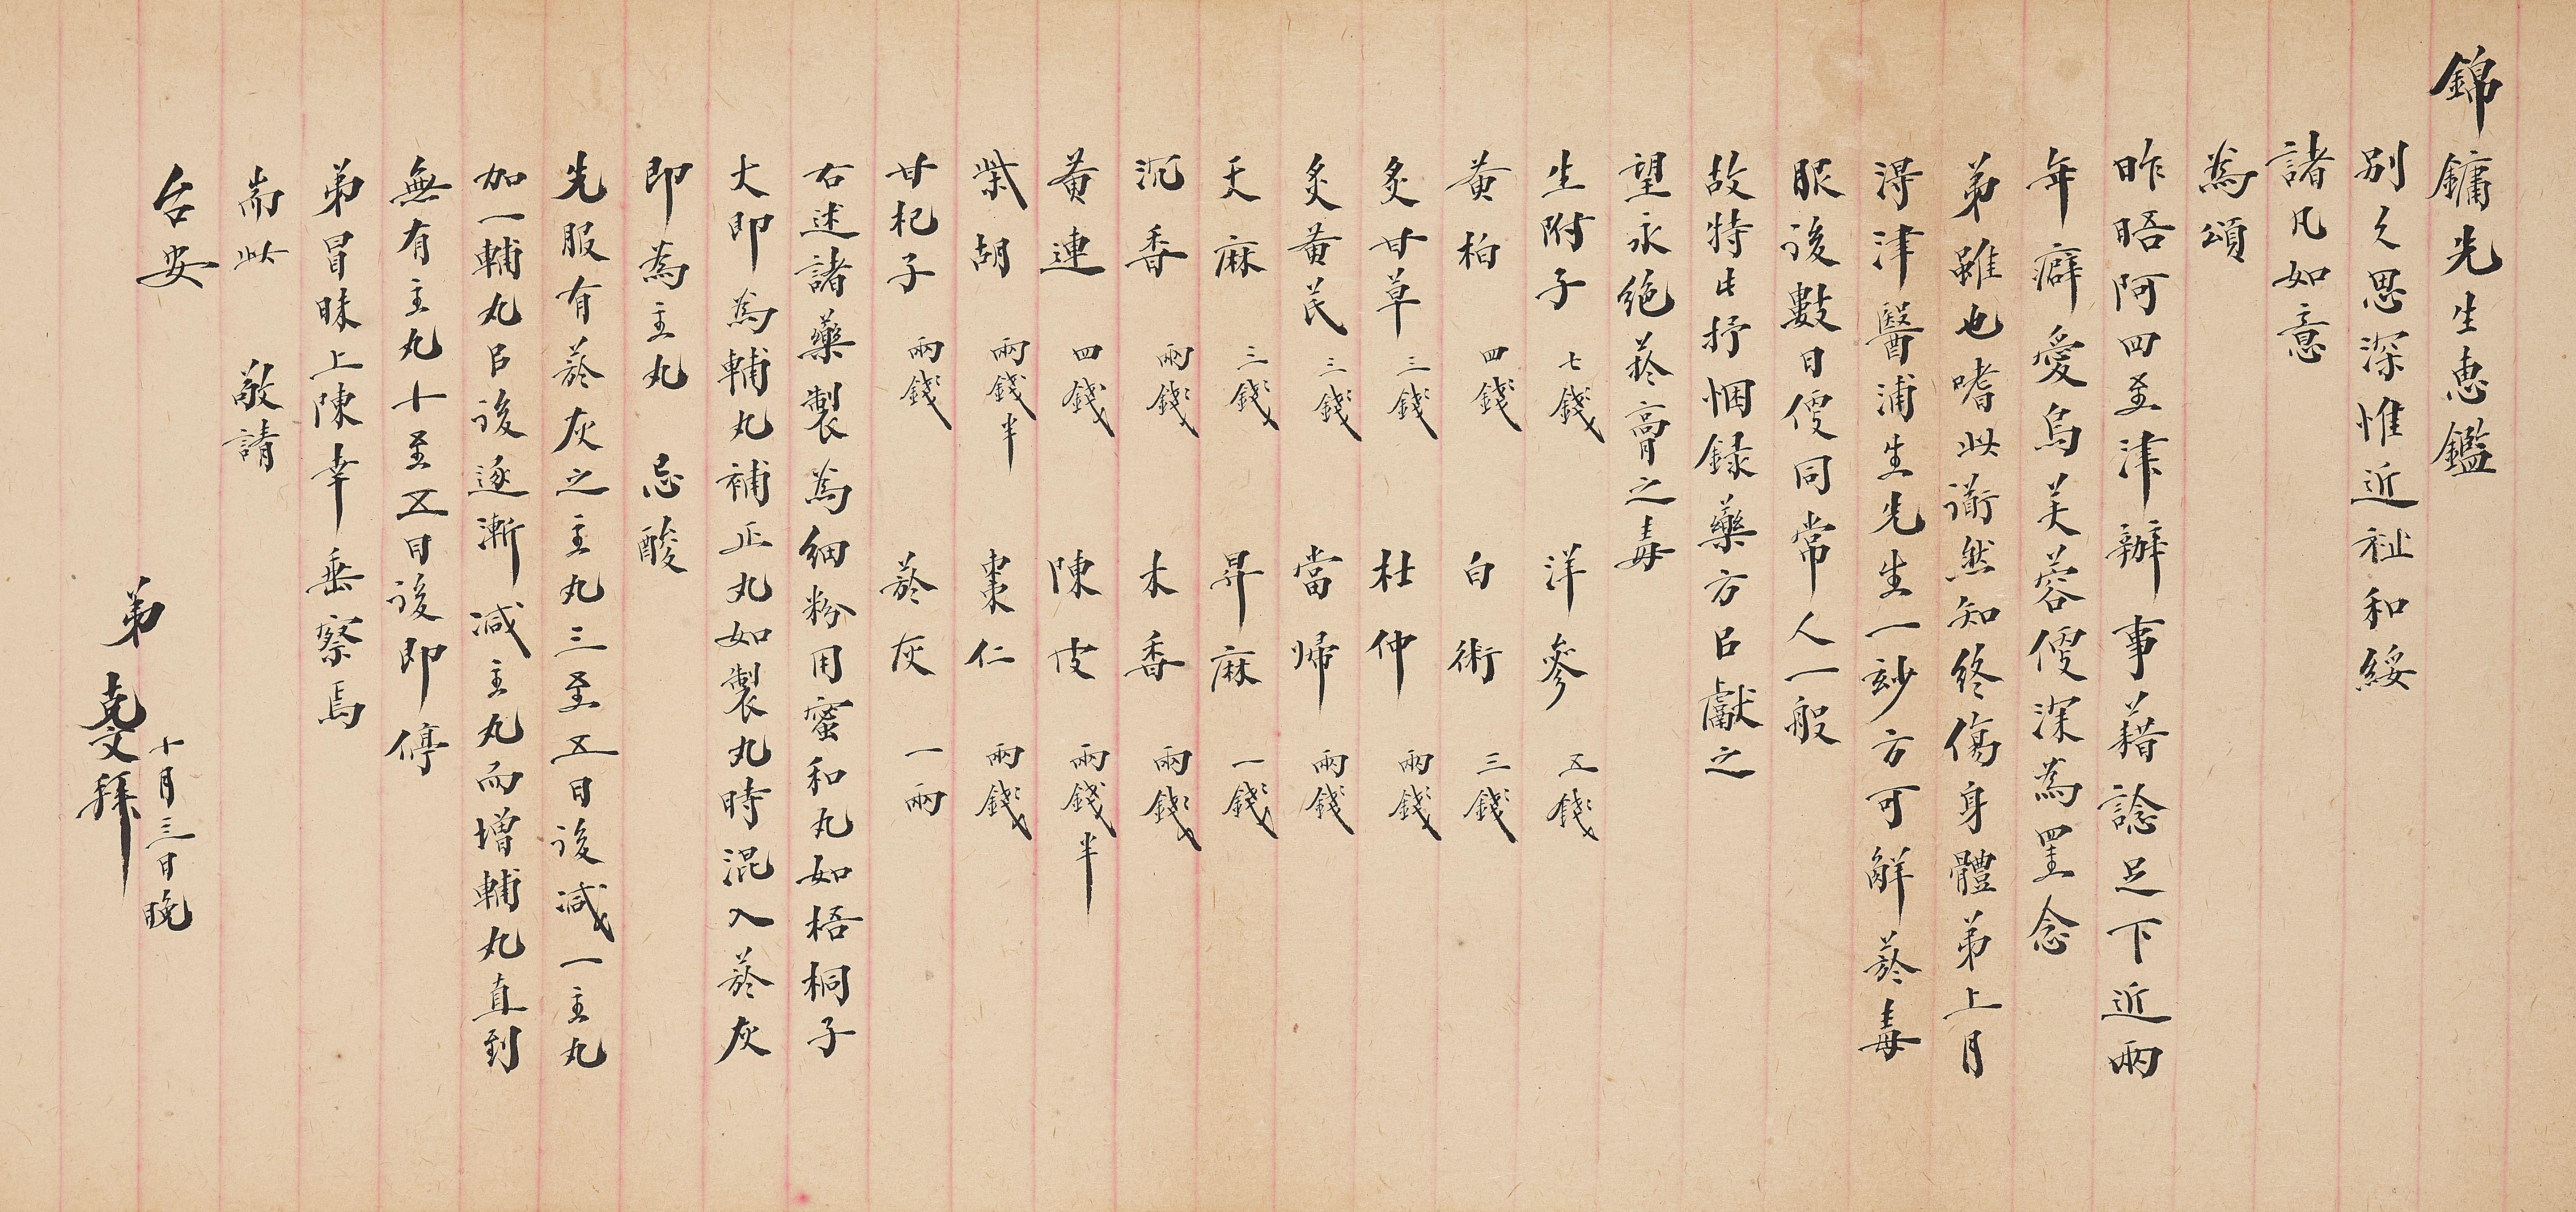 錦鏞先生惠鑑
別久思深惟近祉和綏
諸凡如意
為頌
昨晤阿四至津辦事藉諗足下近兩
年癖愛烏芙蓉傻深為罣念
弟雖也嗜此衜然知終傷身體弟上月
淂津醫浦生先生一玅方可解菸毒
服後數日傻同常人一般
故特此抒悃録藥方㠯獻之
望永絕菸膏之毒
生附子 七錢 洋參 五錢
黄柏 四錢 白術 三錢
炙甘草 三錢 杜仲 兩錢
炙黄芪 三錢 當歸 兩錢
天麻 三錢 昇麻 一錢
沉香 兩錢 木香 兩錢
黄連 四錢 陳皮 兩錢半
柴胡 兩錢半 棗仁 兩錢
甘杞子 兩錢 菸灰 一兩
右述諸藥製為細粉用蜜和丸如梧桐子
大即為輔丸補正丸如製丸時混入菸灰
即為主丸 忌酸
先服有菸灰之主丸三至五日後減一主丸
加一輔丸㠯後逐漸減主丸而增輔丸直到
無有主丸十至五日後即停
弟冒昧上陳幸垂察焉
耑此 敬請
台安
弟 克文拜
十月三日晚